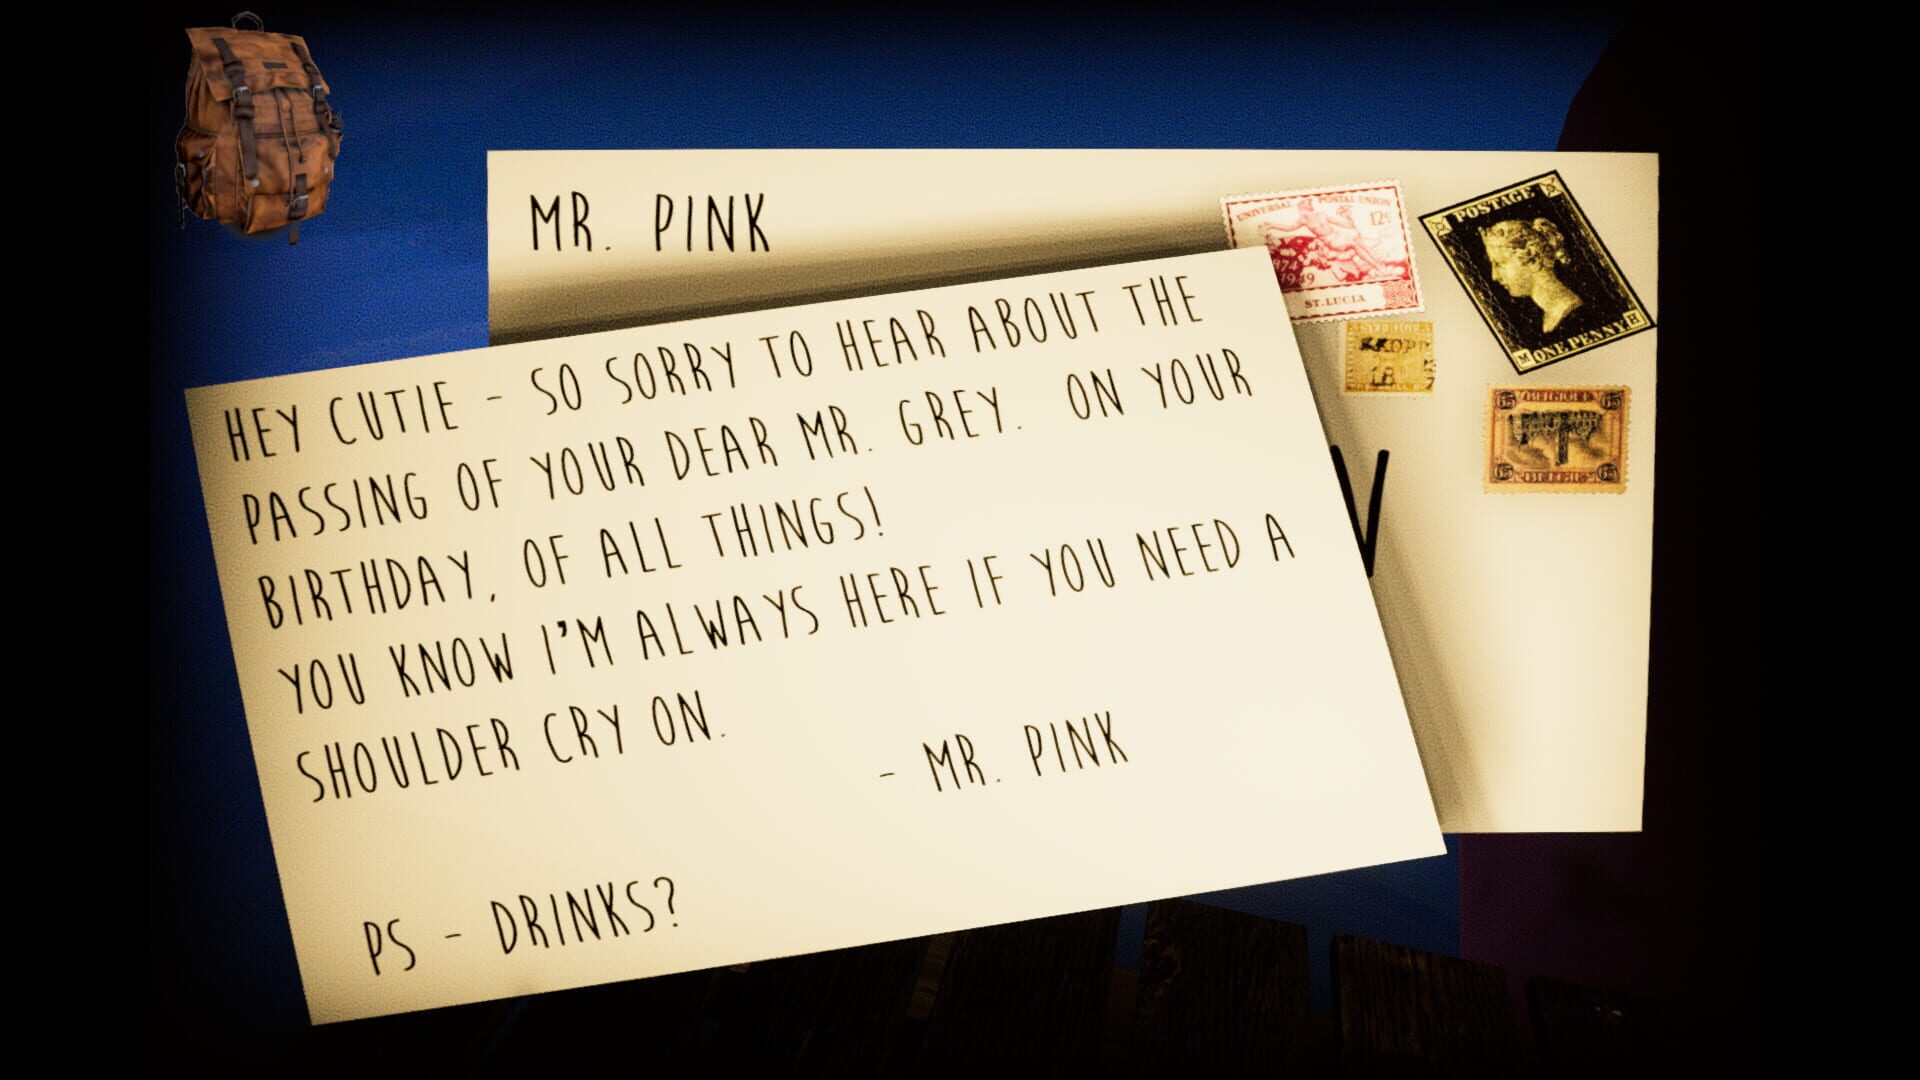 MR. PINK
UNIVERSAL POSTAL UNION
12c
1949
ST. LUCIA
POSTAGE
ONE PENNY
HEY CUTIE - SO SORRY TO HEAR ABOUT THE
PASSING OF YOUR DEAR MR. GREY. ON YOUR
BIRTHDAY, OF ALL THINGS!
YOU KNOW I'M ALWAYS HERE IF YOU NEED A
SHOULDER CRY ON.
- MR. PINK
PS - DRINKS?